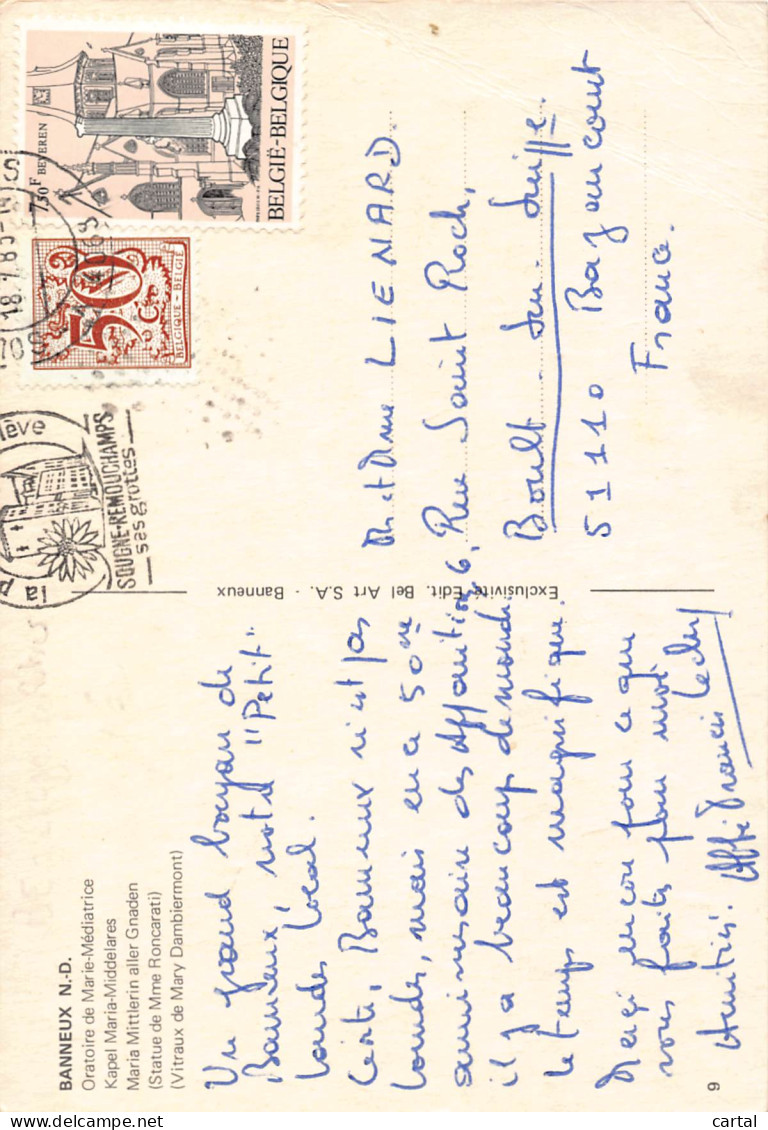 BANNEUX N.-D.
Oratoire de Marie-Médiatrice
Kapel Maria-Middelares
Maria Mittlerin aller Gnaden
(Statue de Mme Roncarati)
(Vitraux de Mary Dambiermont)
Un grand bonjour de
Banneux, notre "Petit"
Lourdes local.
Certes, Banneux n'est pas
Lourdes, mais en ce 50me
anniversaire des Apparitions,
il y a beaucoup de monde.
Le temps est magnifique.
Merci encore pour ce que
vous faites pour moi
Amitiés. Abbé Francis
9
Exclusivité Edit. Bel Art S.A. - Banneux
la
lève
SOUGNE-REMOUCHAMPS
ses grottes
50
BELGIQUE - BELGIË
7,50F BEVEREN
BELGIË-BELGIQUE
M et Mme LIENARD
6, Rue Saint Roch,
Boult. Sur. Suippe.
51110 Bazancourt
France.
cartal